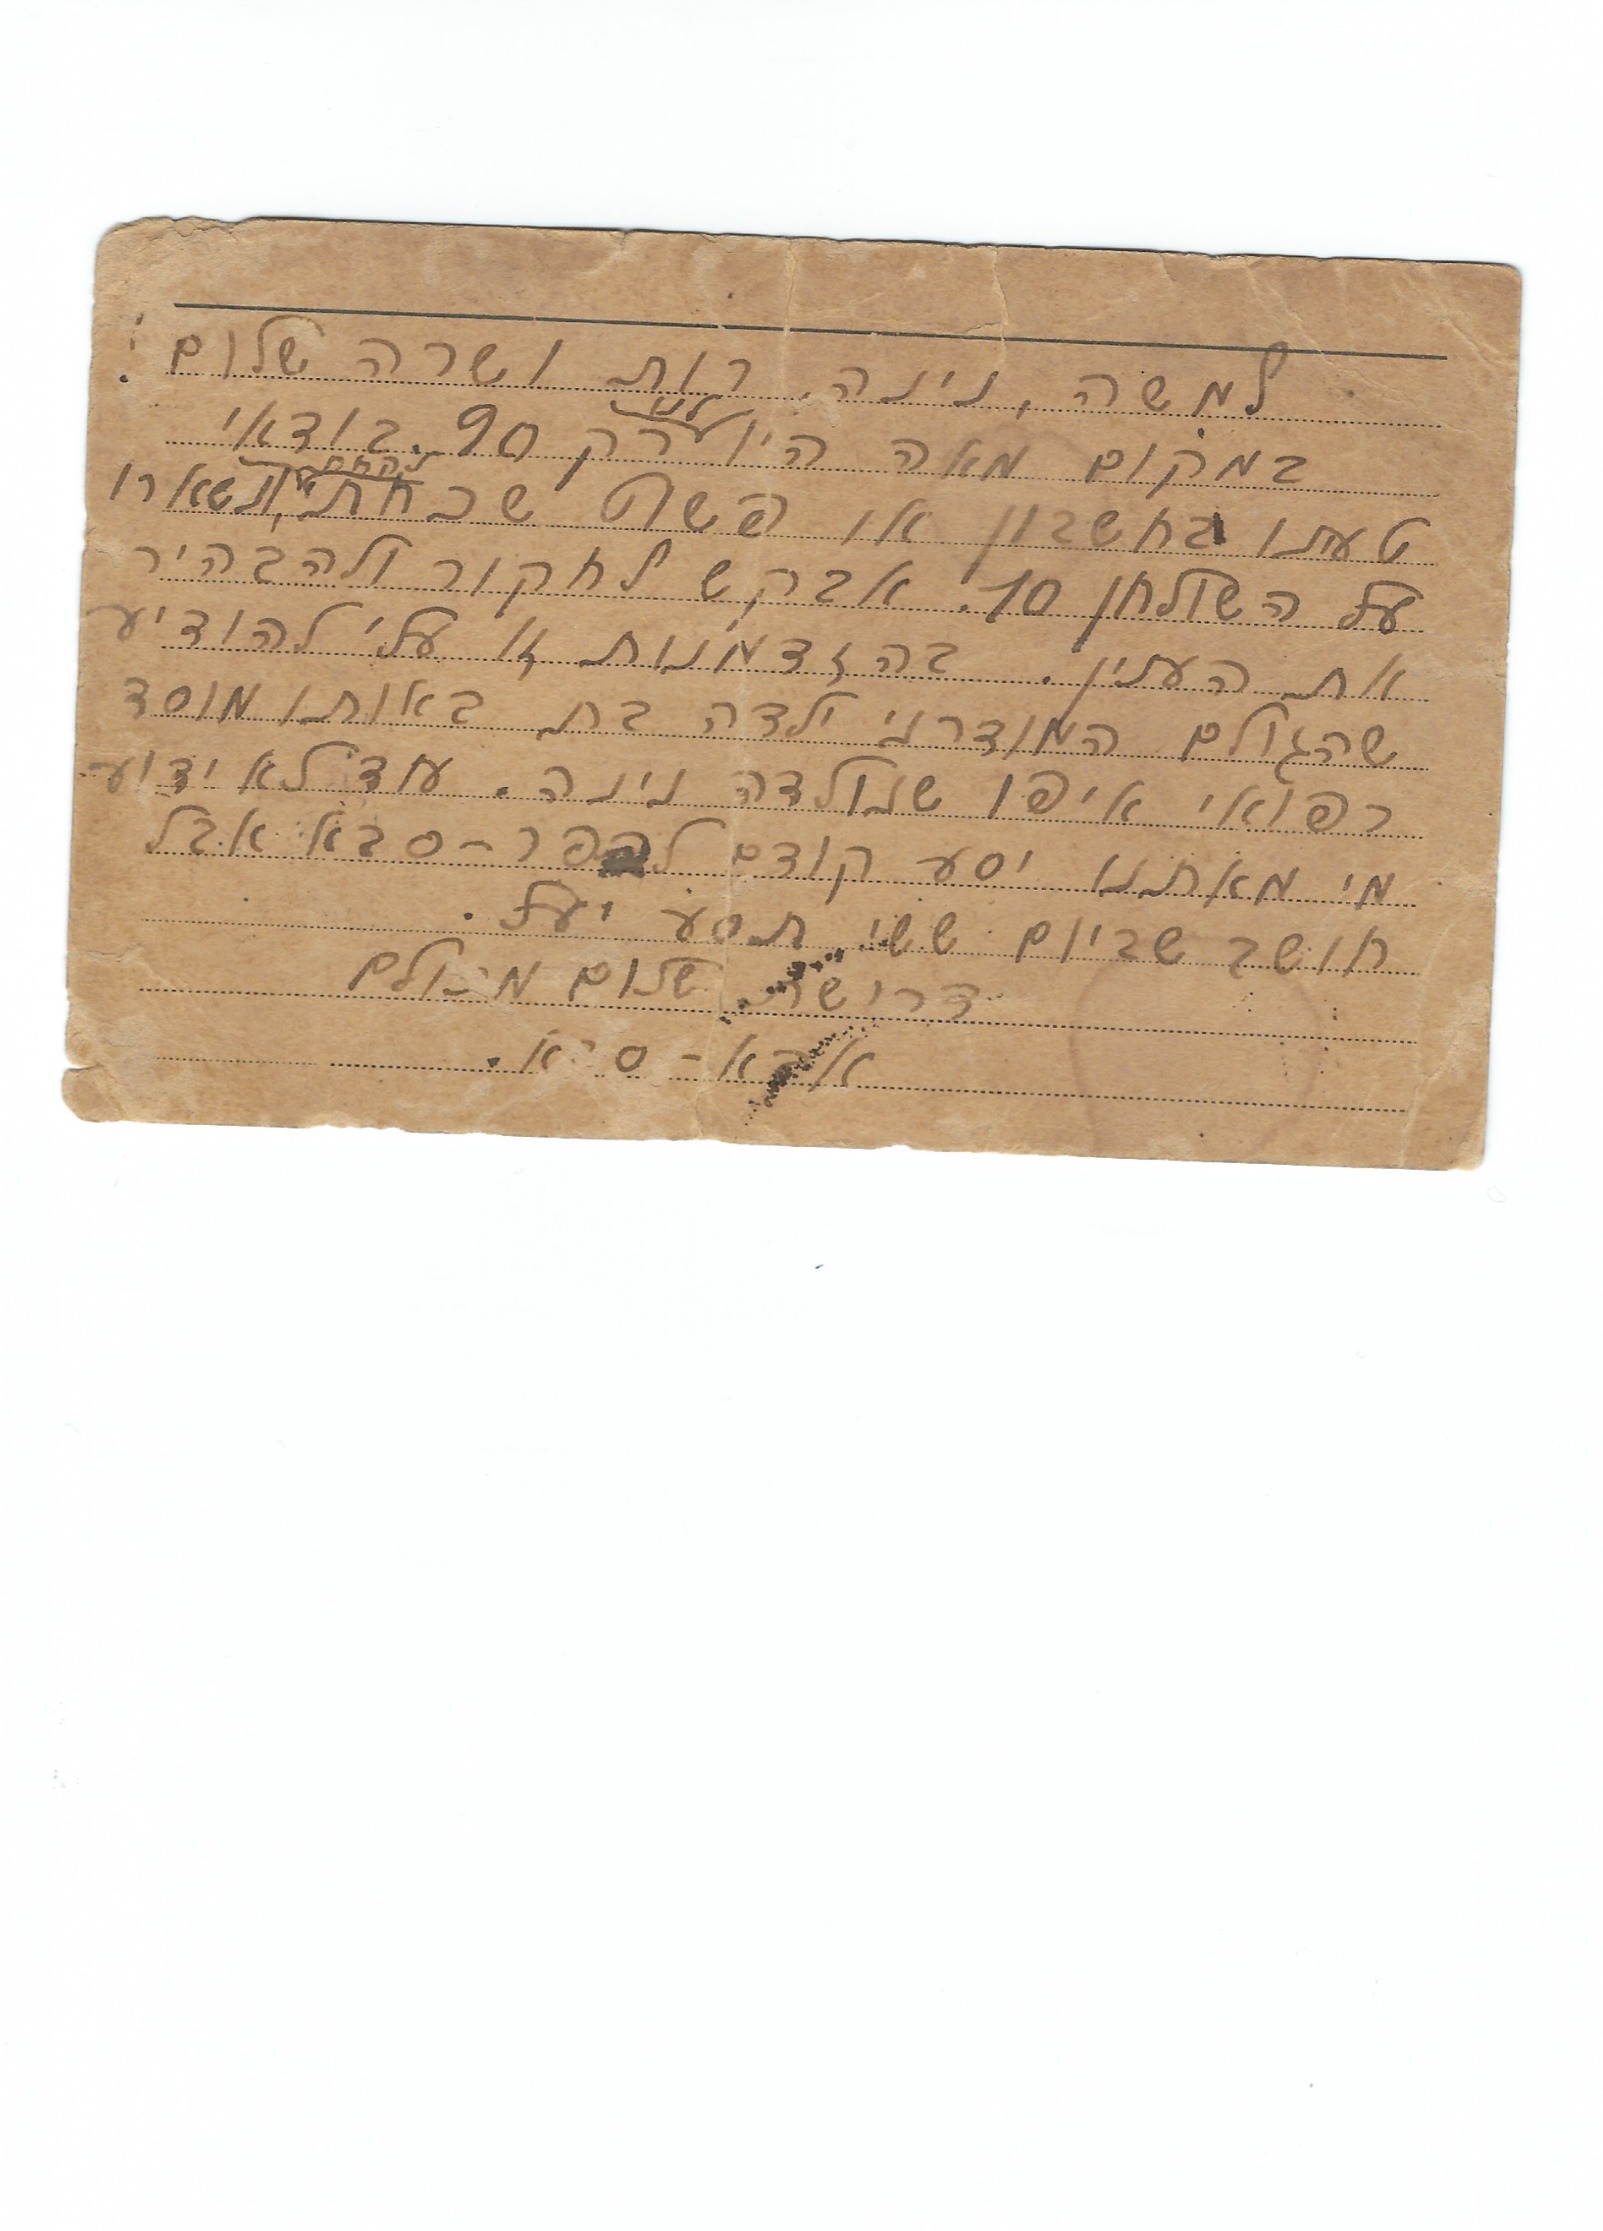 למשה, נינה, רות ושרה שלום!
במקום מאה היו לנו רק 90. בודאי
טעתו בחשבון או פשוט שכחתי לקחת ונשארו
על השולחן 10. אבקש לחקור ולהבהיר
את הענין. בהזדמנות זו עלי להודיע
שהגולם המודרני ילדה בת באותו מוסד
רפואי איפו שנולדה נינה. עוד לא ידוע
מי מאתנו יסע קודם לכפר-סבא אבל
חושב שביום ששי תסע יעל.
דרישת שלום מכולם
אבא-סבא.